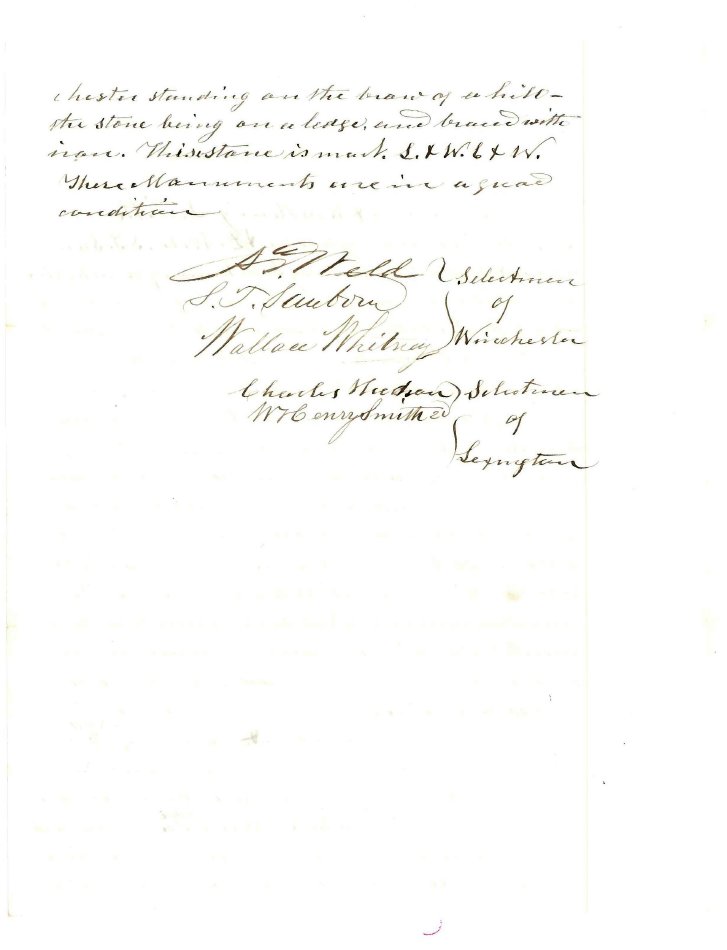 chester standing on the brow of a hill –
the stone being on a ledge, and braced with
iron. This stone is mark. L. & W. & W.
These Monuments are in a good
condition
Weld } Selectmen
S. T. Sanborn of
Wallace Whitney } Winchester
Charles Hudson } Selectmen
W Henry Smith of
Lexington